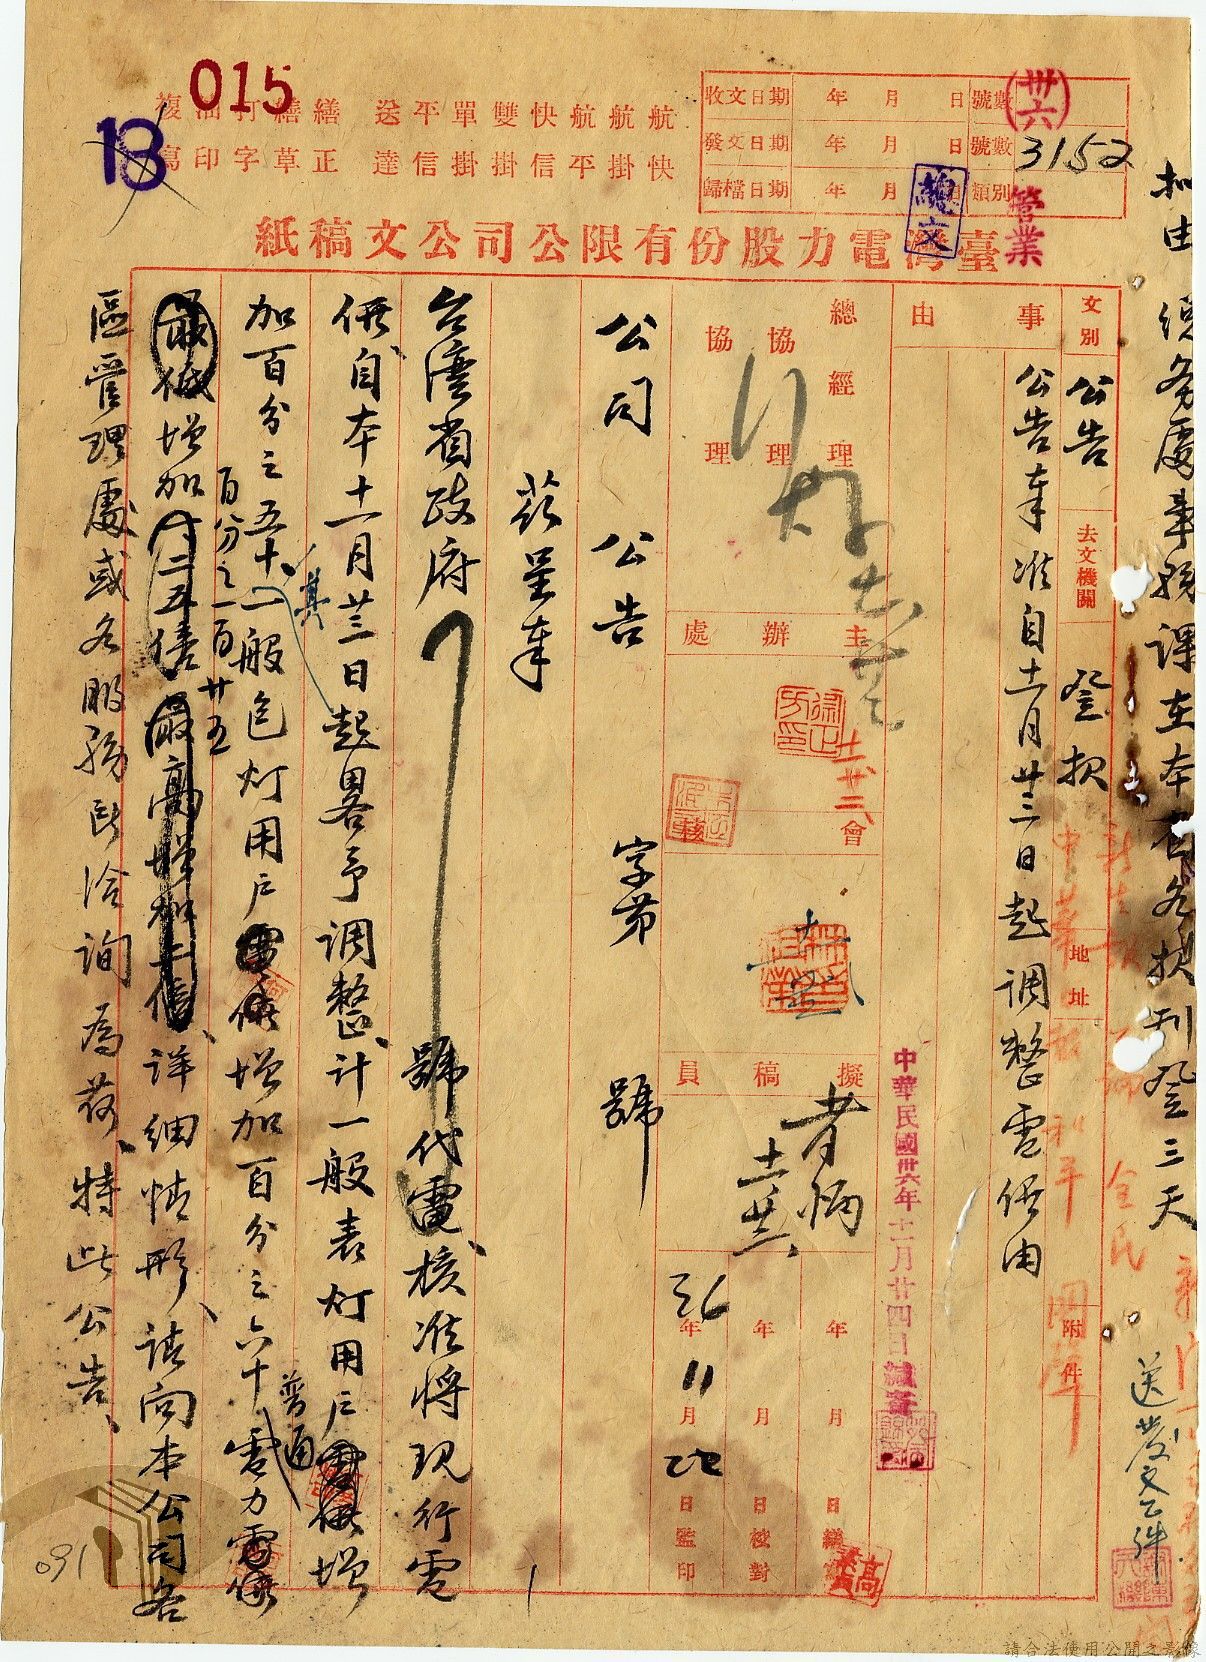 015
18
複寫 油印 打字 繕草 繕正 送達 平信 單掛 雙掛 快信 航平 航掛 航快
收文日期 年 月 日 號數
發文日期 年 月 日 號數
歸檔日期 年 月 日 類別
(卅六)
3152
管業
總文
臺灣電力股份有限公司公文稿紙
文別 公告 去文機關 登報 地址 附件
事由
公告奉准自十一月廿三日起調整電價由
總經理 協理 協理
主辦處
會
擬稿員
中華民國卅六年十一月廿四日繕寫
年 月 日繕寫
年 月 日校對
36年11月22日監印
公司公告 字第 號
茲呈奉
台灣省政府 號代電、核准將現行電
價、自本十一月廿三日起畧予調整、計一般表灯用戶增
加百分之五十、一般包灯用戶增加百分之六十
普通
電力電價
增加
百分之一百廿五
詳細情形、請向本公司各
區管理處或各服務所洽詢為荷、特此公告、
送發文乙件
091
請合法使用公開之影像